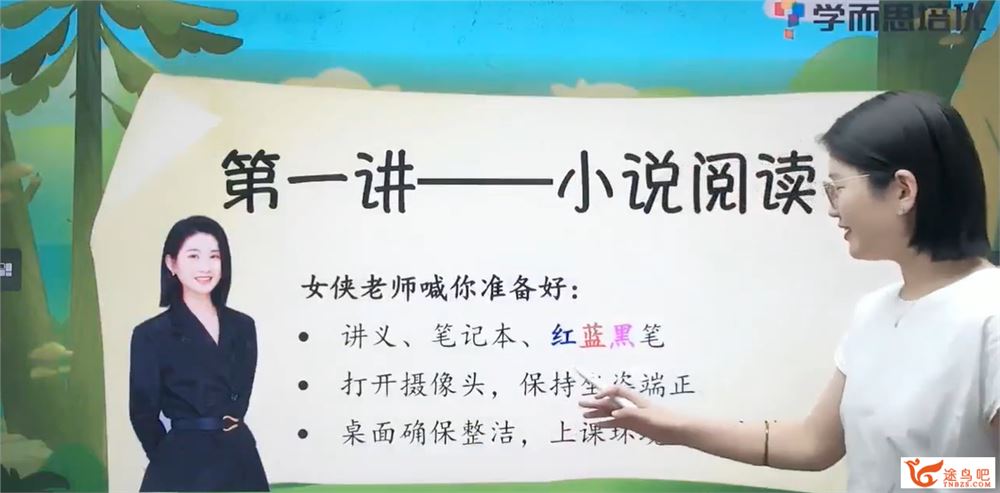 学而思培优
第一讲——小说阅读
女侠老师喊你准备好：
• 讲义、笔记本、红蓝黑笔
• 打开摄像头，保持坐姿端正
• 桌面确保整洁，上课环
途鸟吧
TNBZS.COM